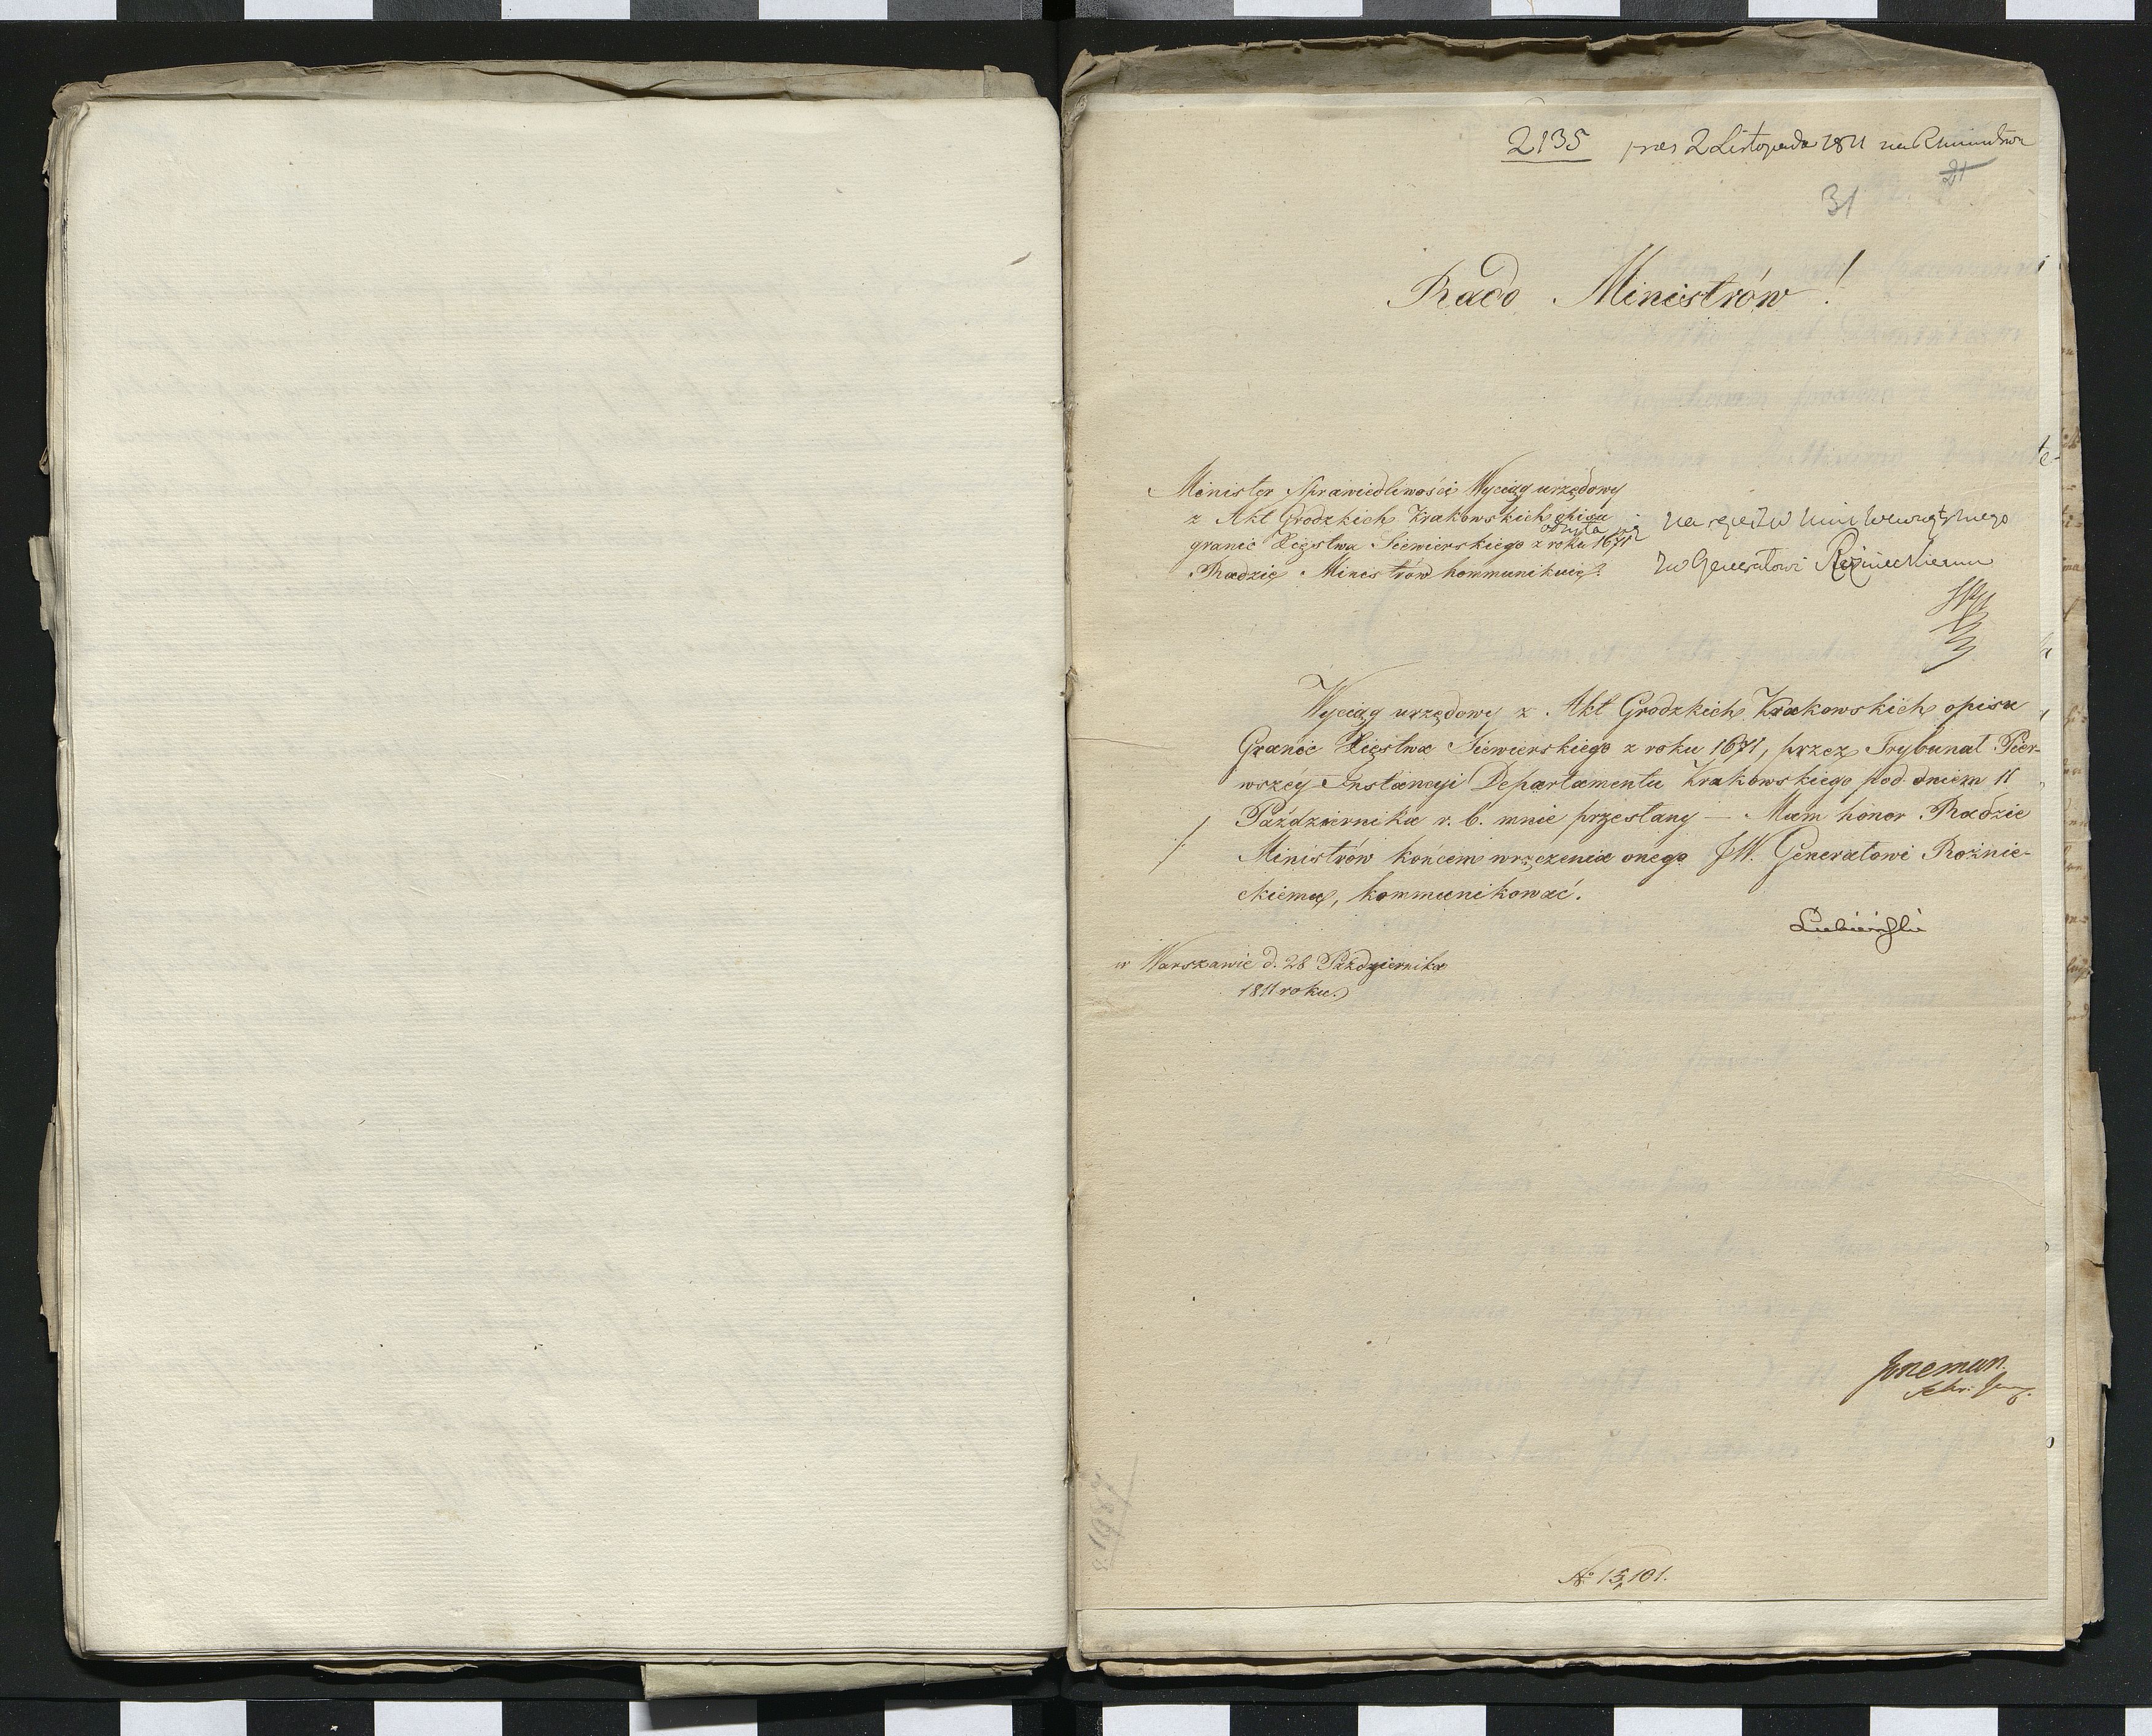 2135 pres 2 Listopada 1811
21
31
Rado Ministrów!
Minister Sprawiedliwości Wyciąg urzędowy
z Akt Grodzkich Krakowskich opisu
granic Xięstwa Siewierskiego z roku 1671
Radzie Ministrów kommunikuie.
JW Generałowi Rożnieckiemu
Wyciąg urzędowy z Akt Grodzkich Krakowskich opisu
Granic Xięstwa Siewierskiego z roku 1671, przez Trybunał Pier-
wszéy Instancyi Departamentu Krakowskiego pod dniem 11
Października r. b. mnie przesłany — Mam honor Radzie
Ministrów końcem wręczenia onego JW. Generałowi Rożnie-
ckiemu, kommunikować.
Łubieński
w Warszawie d. 28 Października
1811 roku.
No 15,101.